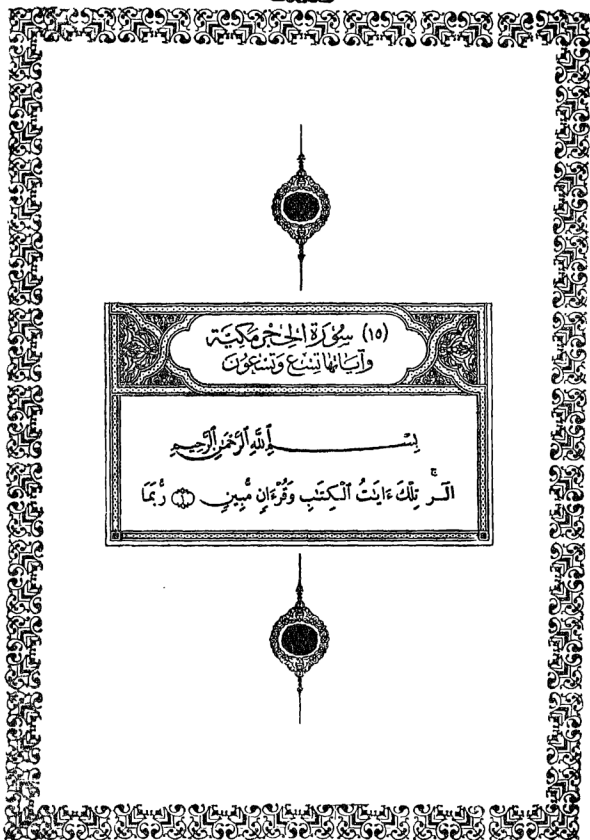 (١٥) سُورَةُ الحِجْرِ مَكِّيَّة
وَآيَاتُهَا تِسْعٌ وَتِسْعُونَ
بِسْمِ ٱللَّهِ ٱلرَّحْمَٰنِ ٱلرَّحِيمِ
الٓر ۚ تِلْكَ ءَايَٰتُ ٱلْكِتَٰبِ وَقُرْءَانٍ مُّبِينٍ ۝١ رُّبَمَا